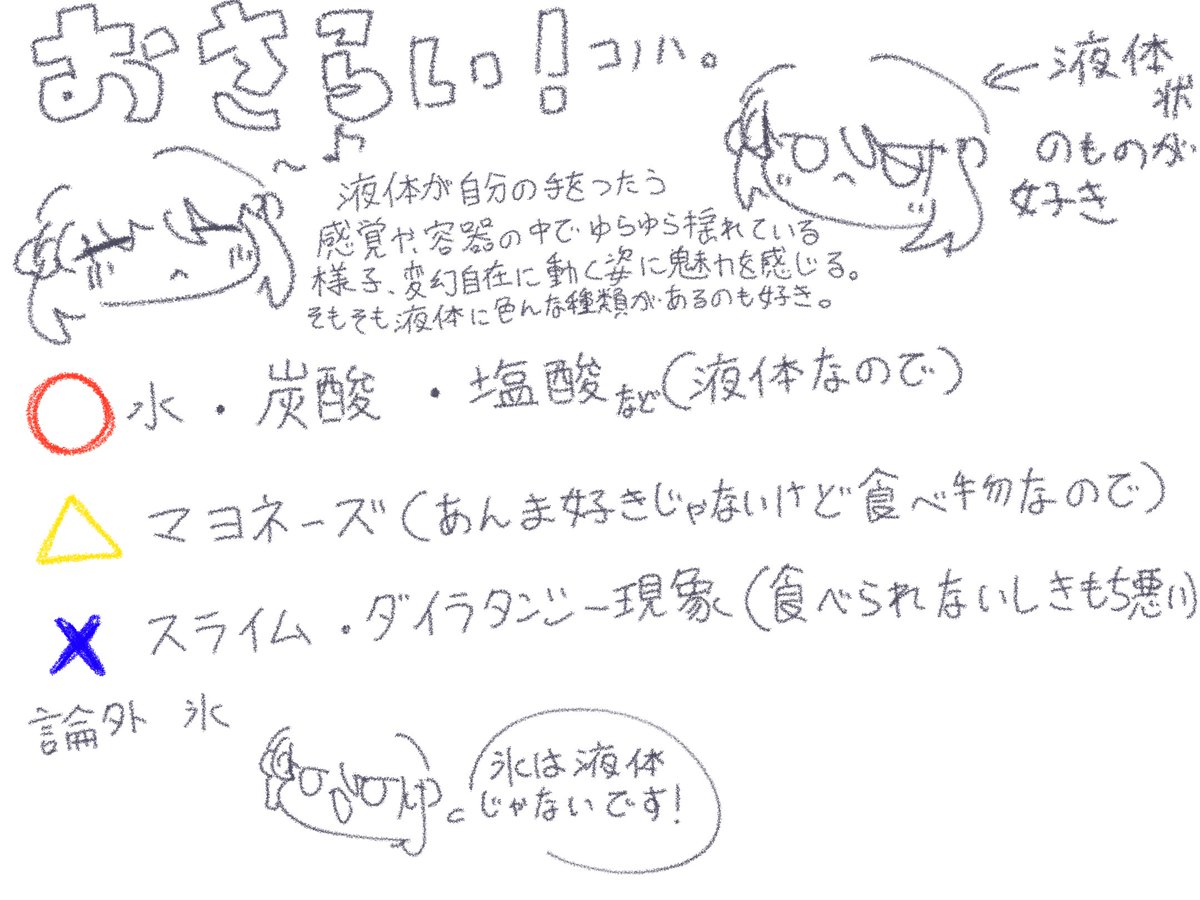 おさらい！コノハ。
←液体状
のものが
好き
液体が自分の手をつたう
感覚や、容器の中でゆらゆら揺れている
様子、変幻自在に動く姿に魅力を感じる。
そもそも液体に色んな種類があるのも好き。
水・炭酸・塩酸など(液体なので)
マヨネーズ(あんま好きじゃないけど食べ物なので)
スライム・ダイラタンシー現象(食べられないしきもち悪い)
論外 氷
氷は液体
じゃないです!